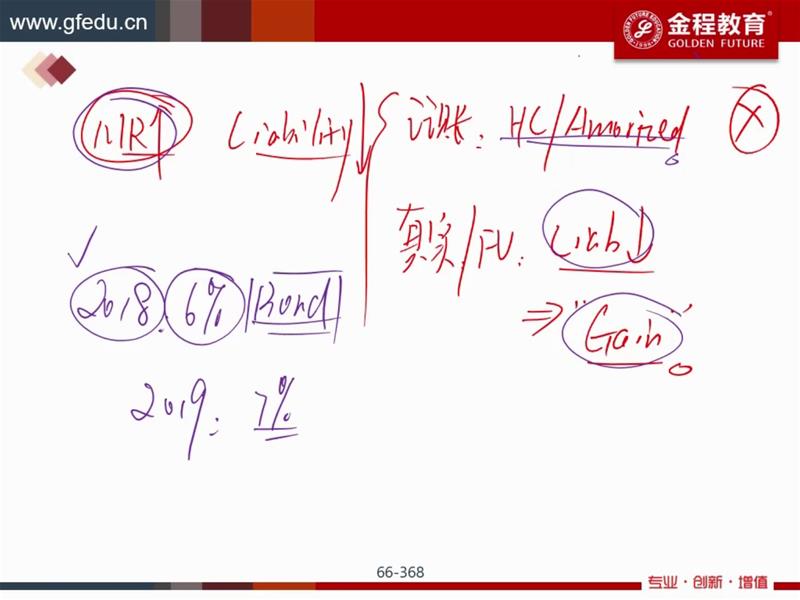 www.gfedu.cn
金程教育
GOLDEN FUTURE
MR↑ Liability↓ 记账: HC/Amorized
真实/FV: Liab↓
⇒ "Gain"
✓
2018. 6% Bond
2019: 7%
66-368
专业·创新·增值